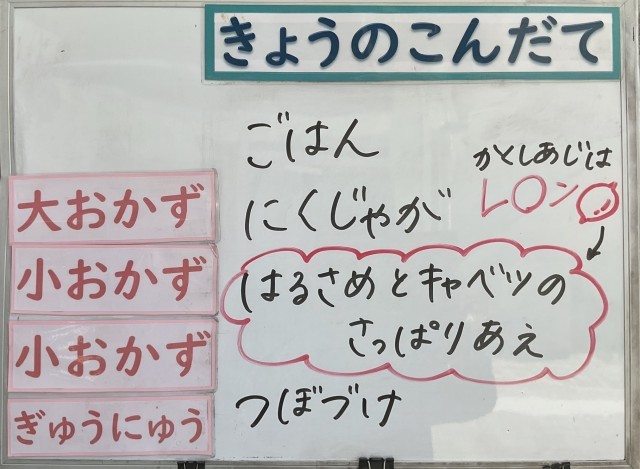 きょうのこんだて
ごはん
かくしあじは
レ〇ン
大おかず
にくじゃが
小おかず
はるさめとキャベツの
さっぱりあえ
小おかず
つぼづけ
ぎゅうにゅう